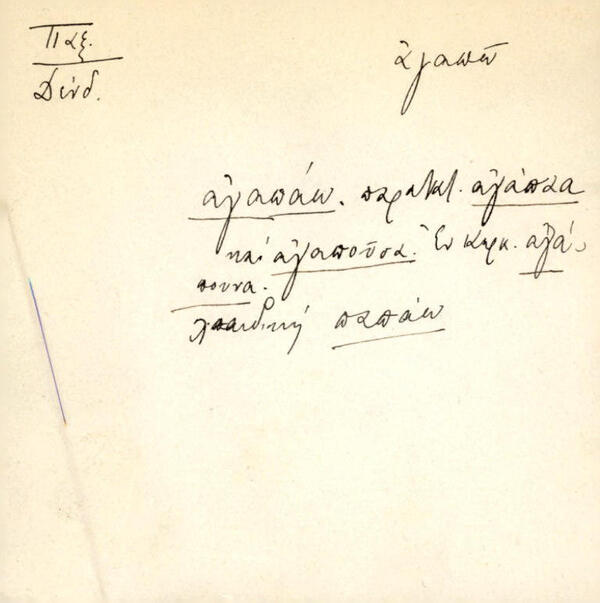 Παξ.
Δενδ.
ἀγαπῶ
ἀγαπάω. παρατατ. ἀγάπαα
καί ἀγαποῦσα. Ἐν Κερκ. ἀγά-
πουνα.
παπάω